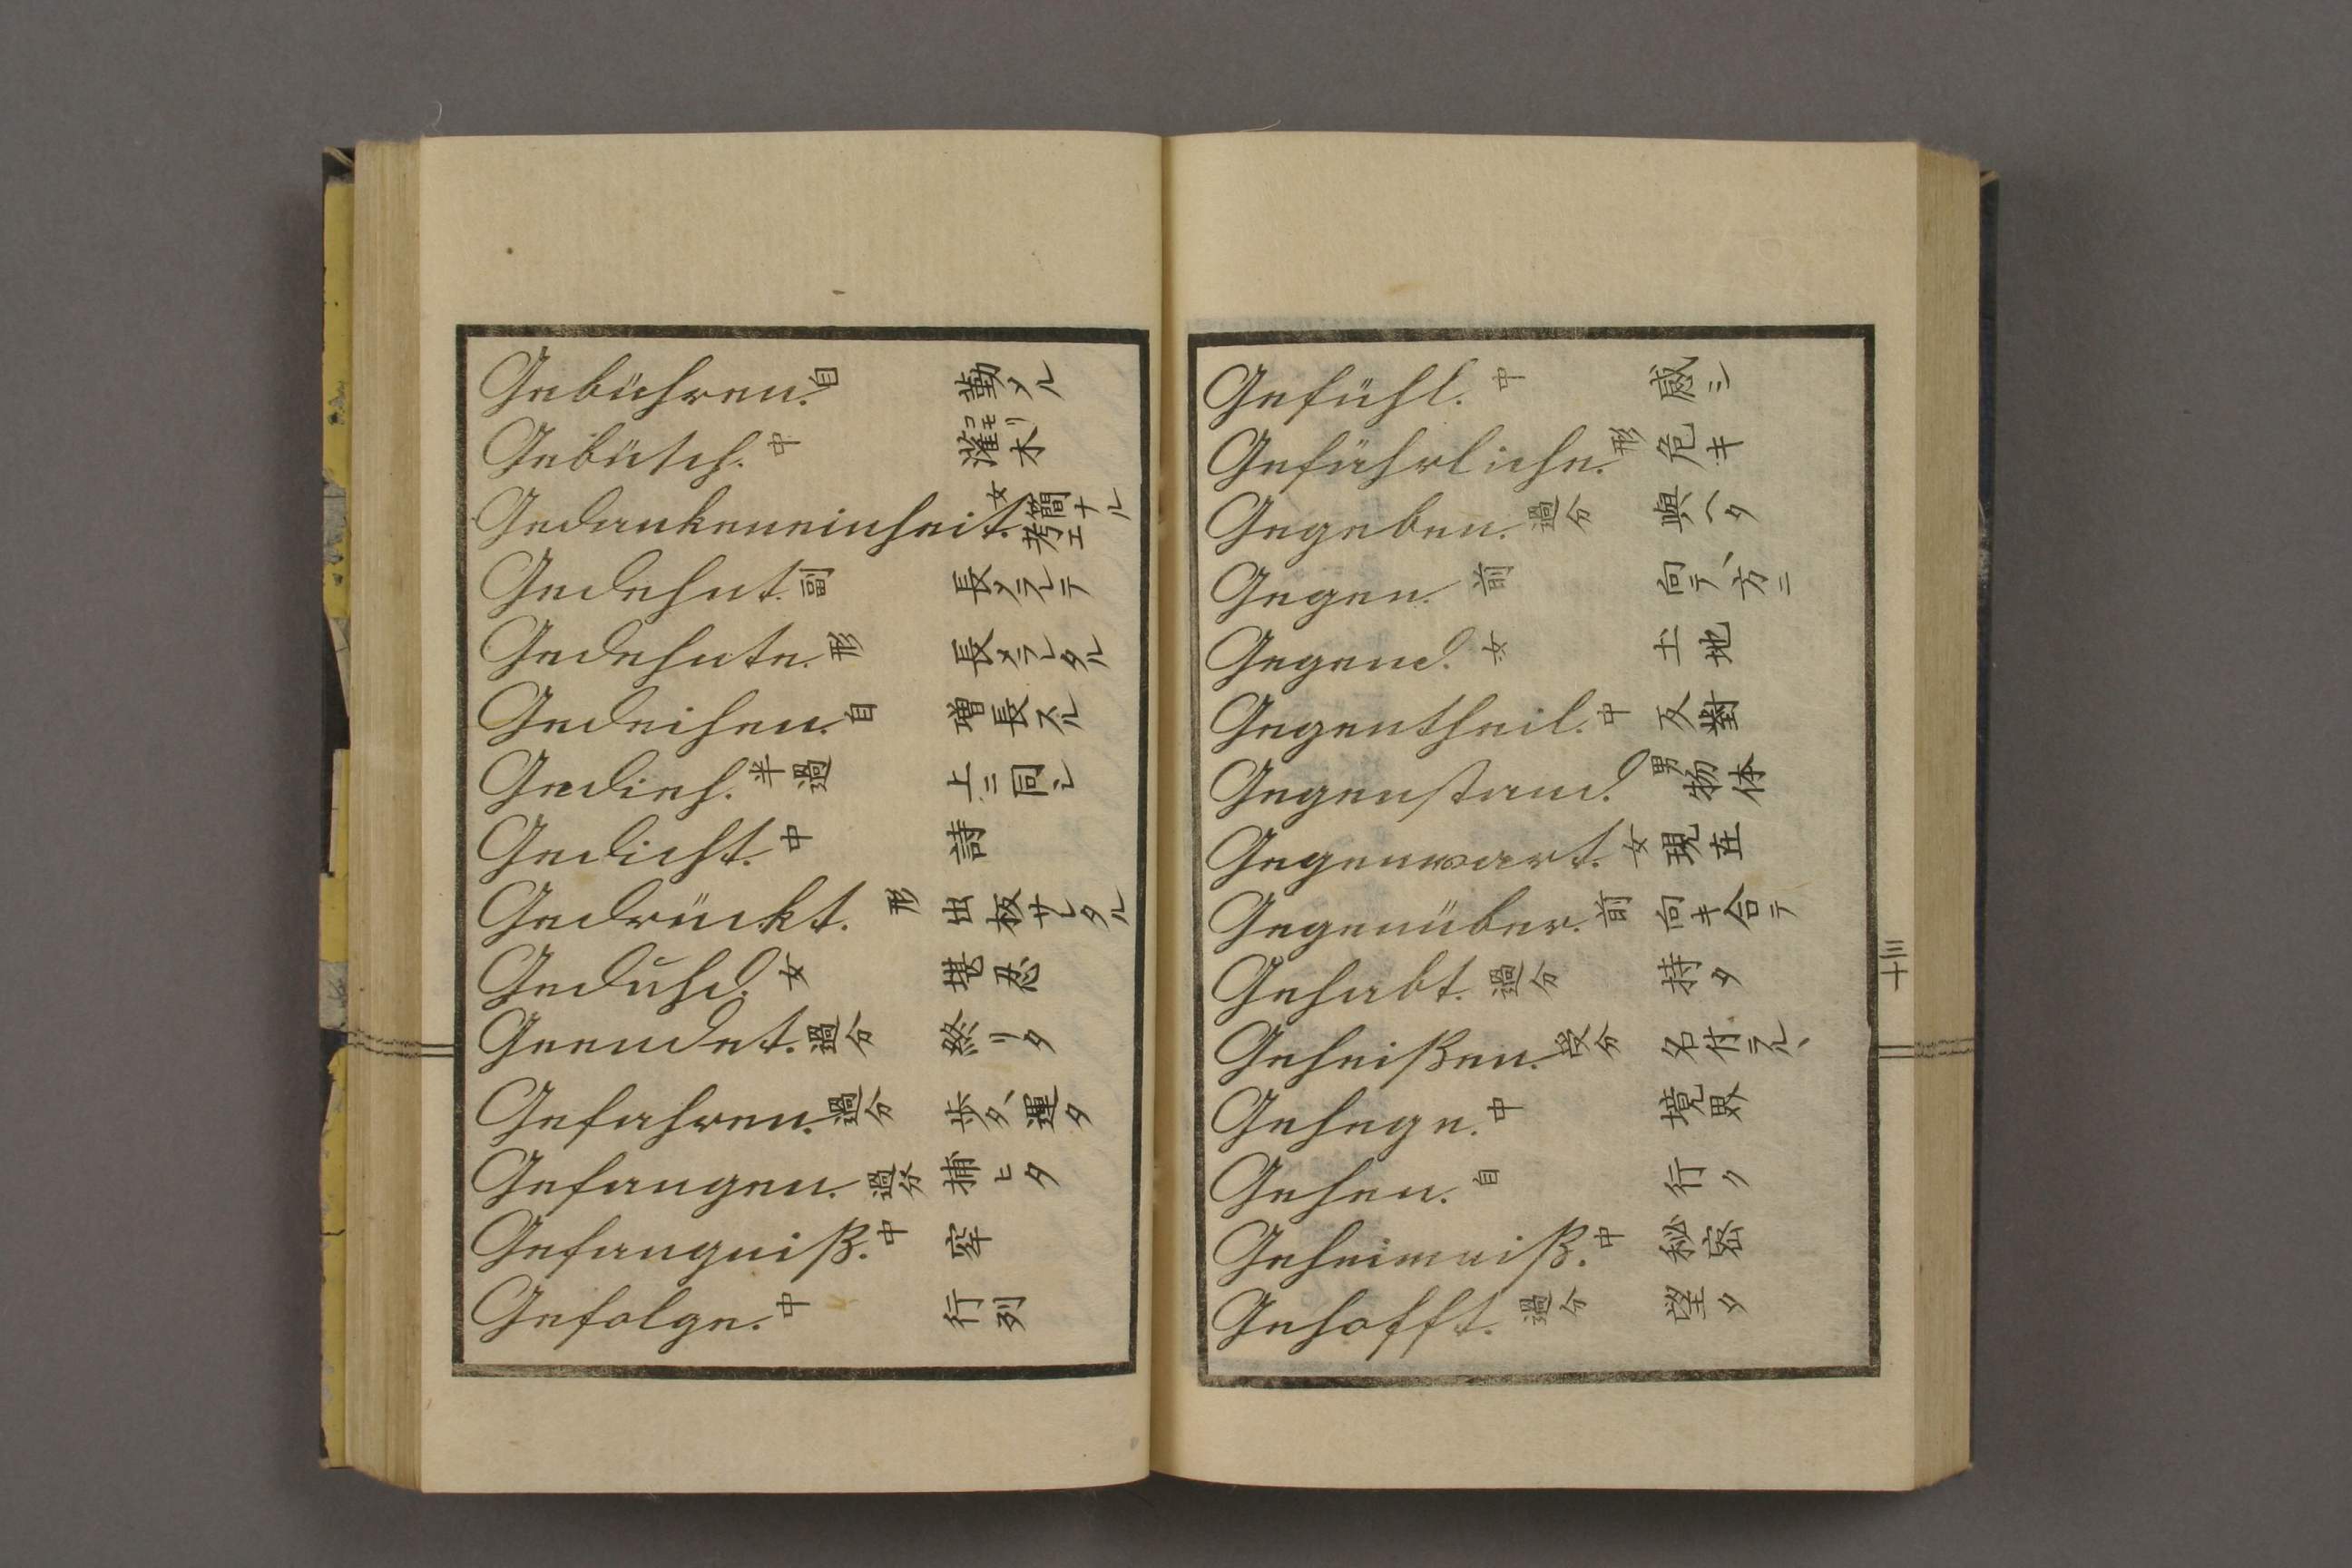 Gebühren. 自 勤メル
Gebüsch. 中 灌木 コモリ
Gedankeneinheit. 女 簡ナル考エ
Gedehnt. 副 長メラレテ
Gedehnte. 形 長メラレタル
Gedeihen. 自 増長スル
Gedieh. 半過 上ニ同シ
Gedicht. 中 詩
Gedrückt. 形 出板サレタル
Geduld. 女 堪忍
Geendet. 過分 終リタ
Gefahren. 過分 歩タ、運タ
Gefangen. 過分 捕ヒタ
Gefangniß. 中 窂
Gefolge. 中 行列
Gefühl. 中 感シ
Gefährliche. 形 危キ
Gegeben. 過分 與ヘタ
Gegen. 前 向テ、方ニ
Gegend. 女 土地
Gegentheil. 中 反對
Gegenstand. 男 物体
Gegenwart. 女 現在
Gegenüber. 前 向キ合テ
Gehabt. 過分 持タ
Geheißen. 受分 名付ラル、
Gehege. 中 境界
Gehen. 自 行ク
Geheimniß. 中 秘密
Gehofft. 過分 望タ
三十